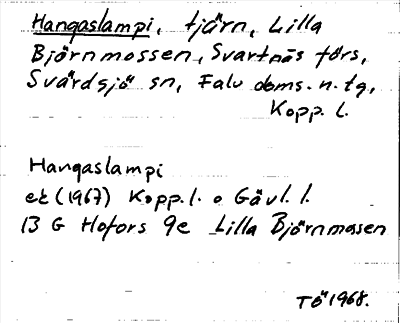 Hangaslampi, tjärn, Lilla
Björnmossen, Svartnäs förs,
Svärdsjö sn, Falu doms. n. tg,
Kopp. l.
Hangaslampi
ek (1967) Kopp. l. o Gävl. l.
13 G Hofors 9e Lilla Björnmosen
TÖ 1968.